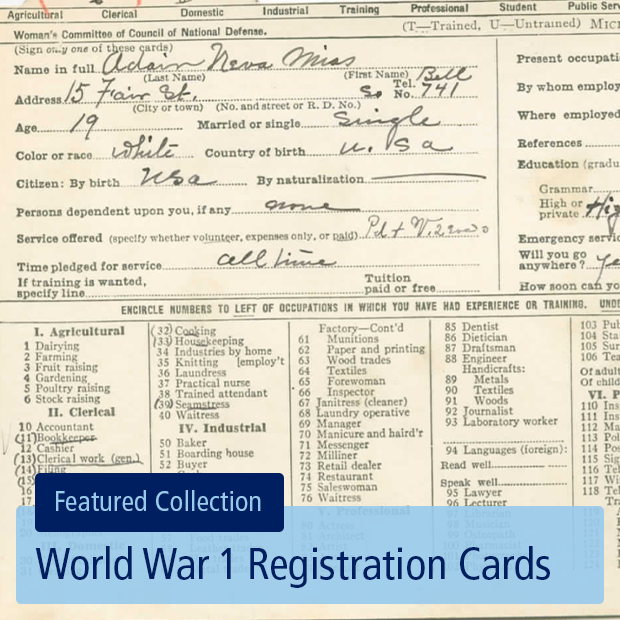 Agricultural Clerical Domestic Industrial Training Professional Student Public Serv
Woman's Committee of Council of National Defense. (T—Trained, U—Untrained) MIC
(Sign only one of these cards)
Name in full Adair Neva Miss
(Last Name) (First Name) Bell
Address 15 Fair St. So Tel. No. 741
(City or town) (No. and street or R. D. No.)
Age 19 Married or single Single
Color or race White Country of birth U. S a
Citizen: By birth USa By naturalization
Persons dependent upon you, if any none
Service offered (specify whether volunteer, expenses only, or paid) Pd +
Time pledged for service all time
If training is wanted, Tuition
specify line paid or free
Present occupati
By whom employ
Where employed
References
Education (gradu
Grammar
High or Hig
private
Emergency servic
Will you go
anywhere? ye
How soon can yo
ENCIRCLE NUMBERS TO LEFT OF OCCUPATIONS IN WHICH YOU HAVE HAD EXPERIENCE OR TRAINING. UND
I. Agricultural
1 Dairying
2 Farming
3 Fruit raising
4 Gardening
5 Poultry raising
6 Stock raising
II. Clerical
10 Accountant
(11) Bookkeeper
12 Cashier
(13) Clerical work (gen.)
(14) Filing
(15)
16
17
(32) Cooking
(33) Housekeeping
34 Industries by home
35 Knitting [employ't
36 Laundress
37 Practical nurse
38 Trained attendant
(39) Seamstress
40 Waitress
IV. Industrial
50 Baker
51 Boarding house
52 Buyer
Factory—Cont'd
61 Munitions
62 Paper and printing
63 Wood trades
64 Textiles
65 Forewoman
66 Inspector
67 Janitress (cleaner)
68 Laundry operative
69 Manager
70 Manicure and haird'r
71 Messenger
72 Milliner
73 Retail dealer
74 Restaurant
75 Saleswoman
76 Waitress
V. Professional
85 Dentist
86 Dietician
87 Draftsman
88 Engineer
Handicrafts:
89 Metals
90 Textiles
91 Woods
92 Journalist
93 Laboratory worker
94 Languages (foreign):
Read well
Speak well
95 Lawyer
96 Lecturer
103 Pub
104 Sta
105 Sur
106 Tea
Of adult
Of child
VI. P
110 Ins
111 Ins
112 Ma
113 Pol
114 Pos
115 Sig
116 Tel
117 Wi
118 Tel
Tra
Featured Collection
World War 1 Registration Cards